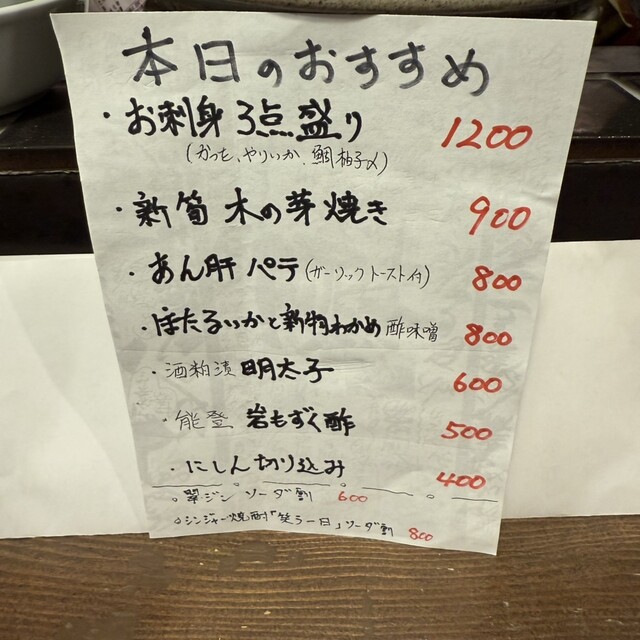 本日のおすすめ
・お刺身 3点盛り 1200
(かつを、やりいか、鯛柚子〆)
・新筍 木の芽焼き 900
・あん肝 パテ(ガーリックトースト付) 800
・ほたるいかと新物わかめ 酢味噌 800
・酒粕漬 明太子 600
・能登 岩もずく酢 500
・にしん切り込み 400
○翠ジン ソーダ割 600
○ジンジャー焼酎「笑う一日」ソーダ割 800